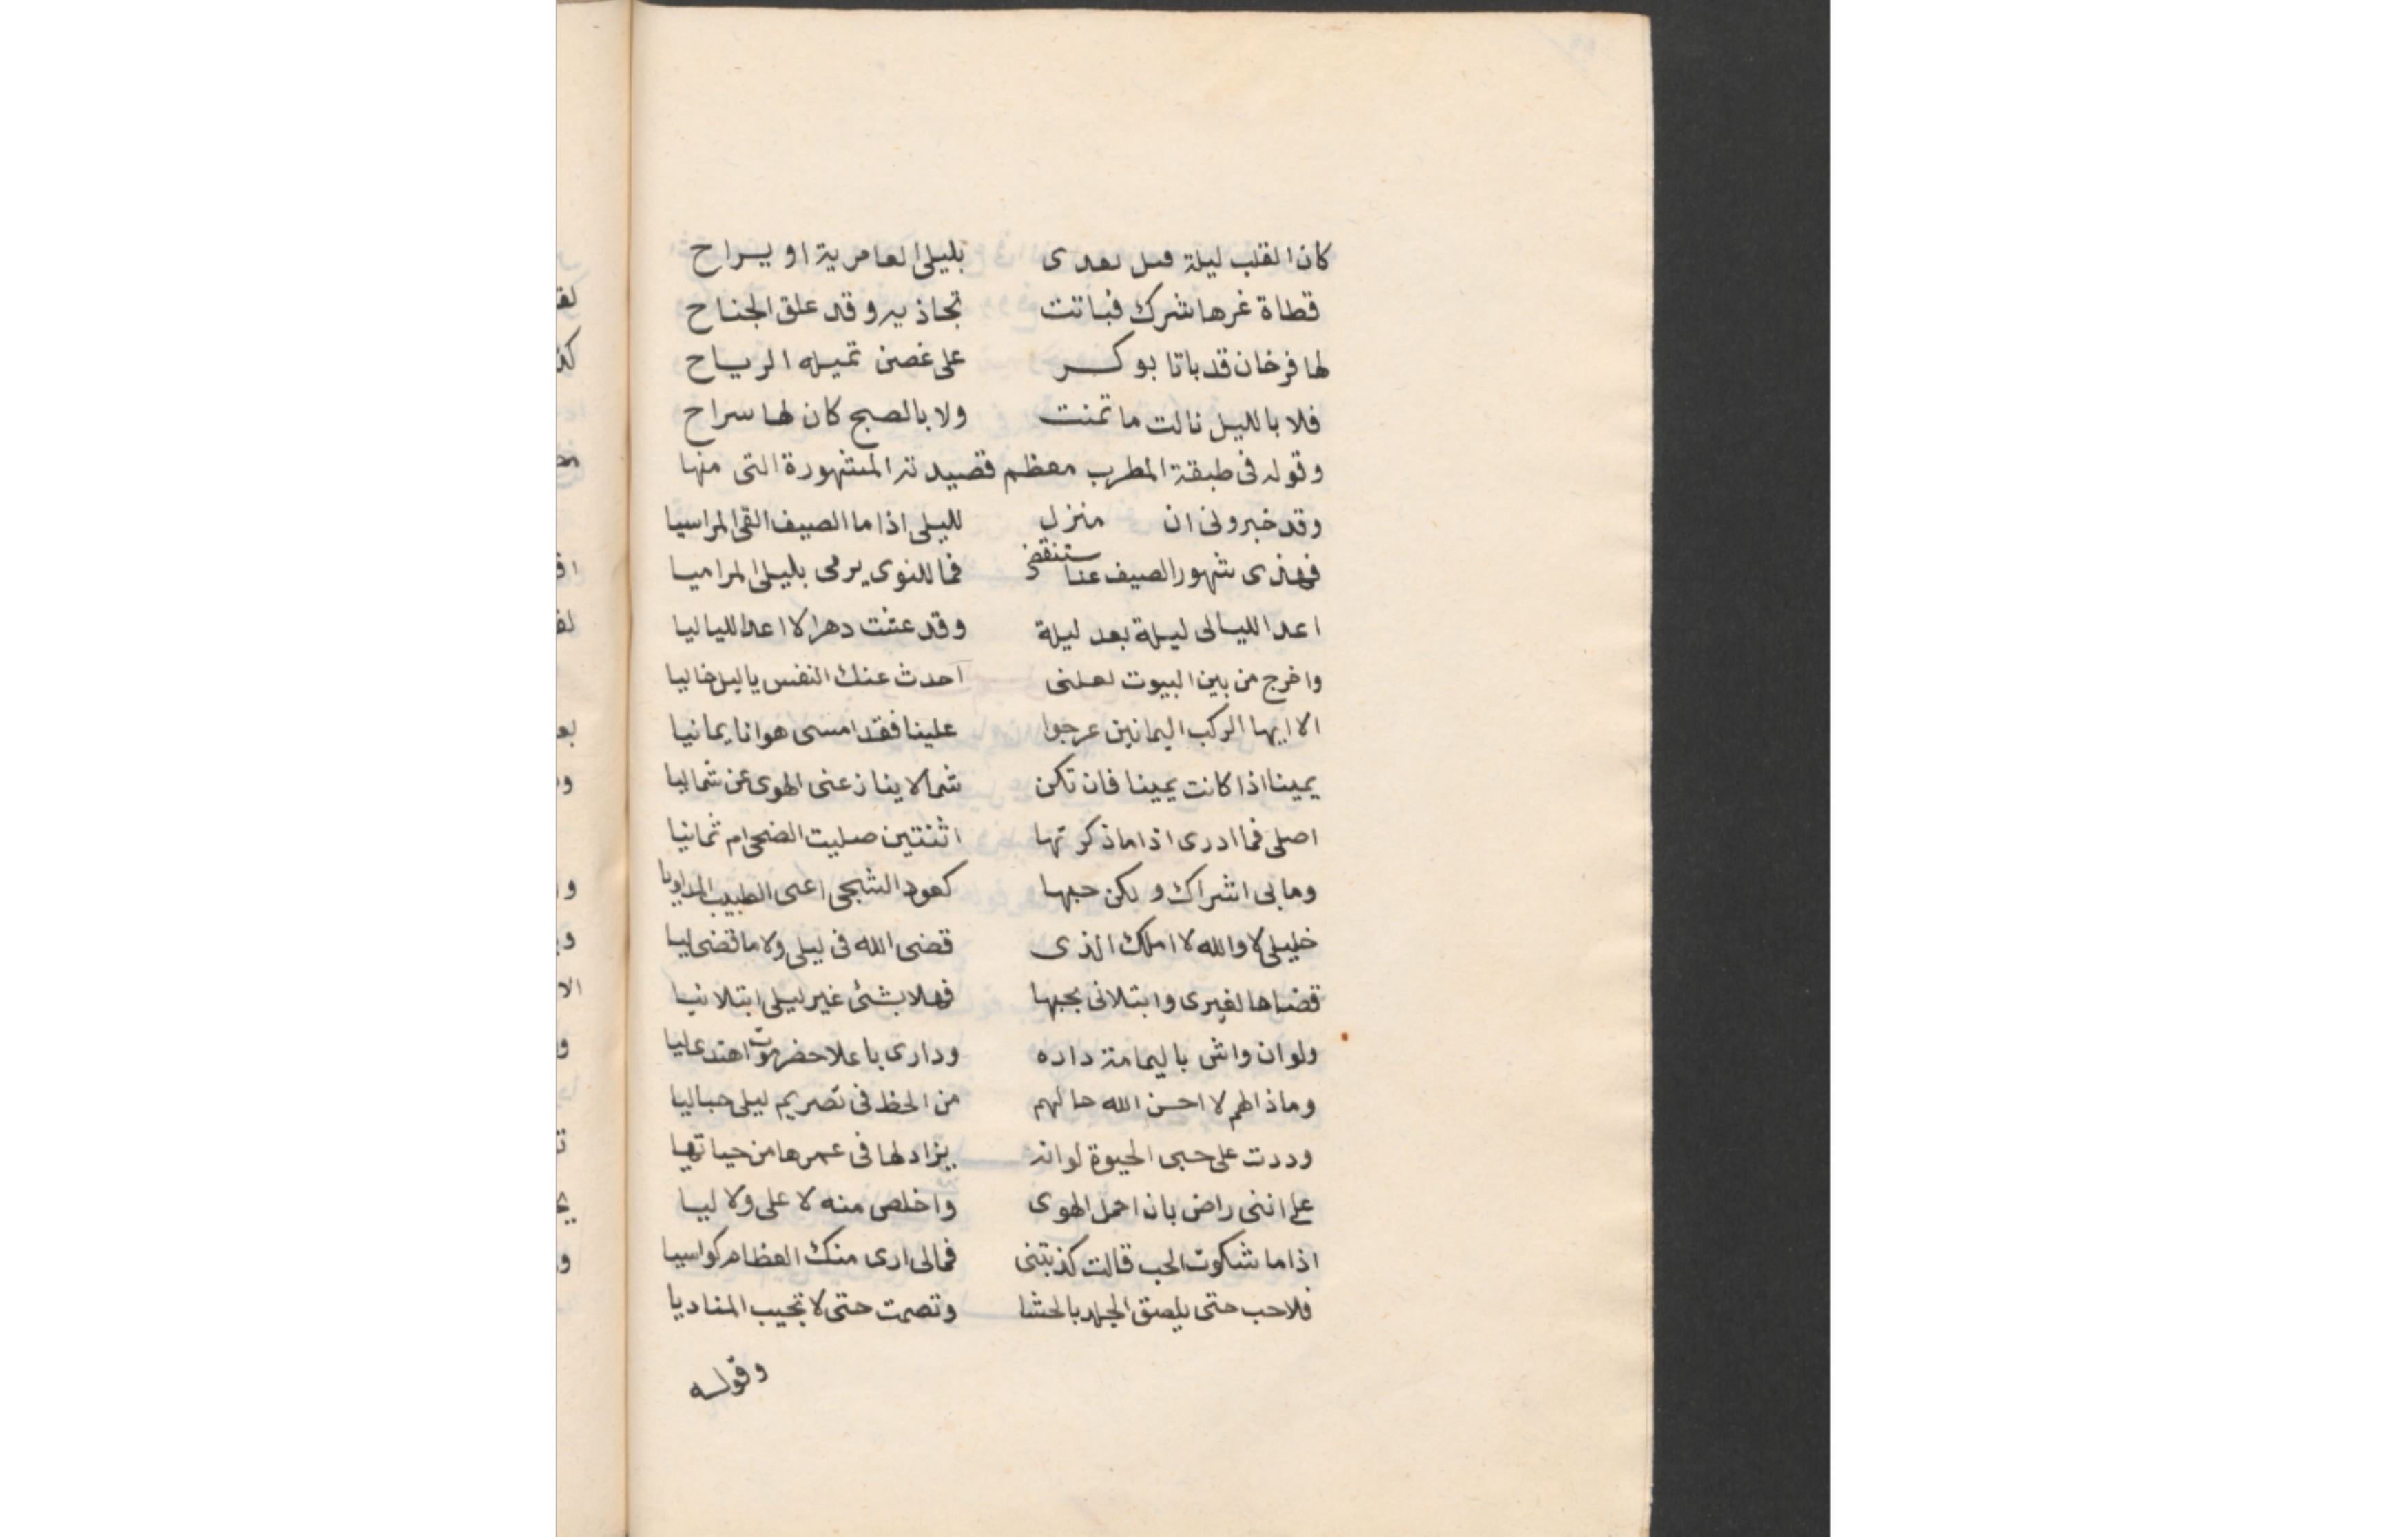 كان القلب ليلة قىل ىعدى بليلى العامرية او يراح
قطاة غرها شرك فباتت تجاذبه وقد علق الجناح
لها فرخان قد باتا بوكر على غصن تميله الرياح
فلا بالليل نالت ما تمنت ولا بالصبح كان لها سراح
وقوله فى طبقة المطرب معظم قصيدته المشهورة التى منها
وقد خبرونى ان منزل لليلى اذا ما الصيف القى المراسيا
فهذى شهور الصيف عنا ستنقضى فما للنوى يرمى بليلى المراميا
اعد الليالى ليلة بعد ليلة وقد عشت دهرا لا اعد اللياليا
واخرج من بين البيوت لعلنى احدث عنك النفس ياليل خاليا
الا ايها الركب اليمانين عرجوا علينا فقد امسى هوانا يمانيا
يمينا اذا كانت يمينا فان تكن شمالا ينازعنى الهوى عن شماليا
اصلى فما ادرى اذا ما ذكرتها اثنتين صليت الضحى ام ثمانيا
وما بى اشراك ولكن حبها كعود الشجى اعى الطبيب المداويا
خليلى لا والله لا املك الذى قضى الله فى ليلى ولا ما قضى ليا
قضاها لغيرى وابتلانى بحبها فهلا بشئ غير ليلى ابتلانيا
ولو ان واش باليمامة داره ودارى باعلا حضرموت اهتدى ليا
وماذا لهم لا احسن الله حالهم من الحظ فى تصريم ليلى حباليا
وددت على حبى الحيوة لو انه يزاد لها فى عمرها من حياتيا
على اننى راض بان احمل الهوى واخلص منه لا على ولا ليا
اذا ما شكوت الحب قالت كذبتنى فمالى ارى منك العظام كواسيا
فلا حب حتى يلصق الجلد بالحشا وتصمت حتى لا تجيب المناديا
وقوله